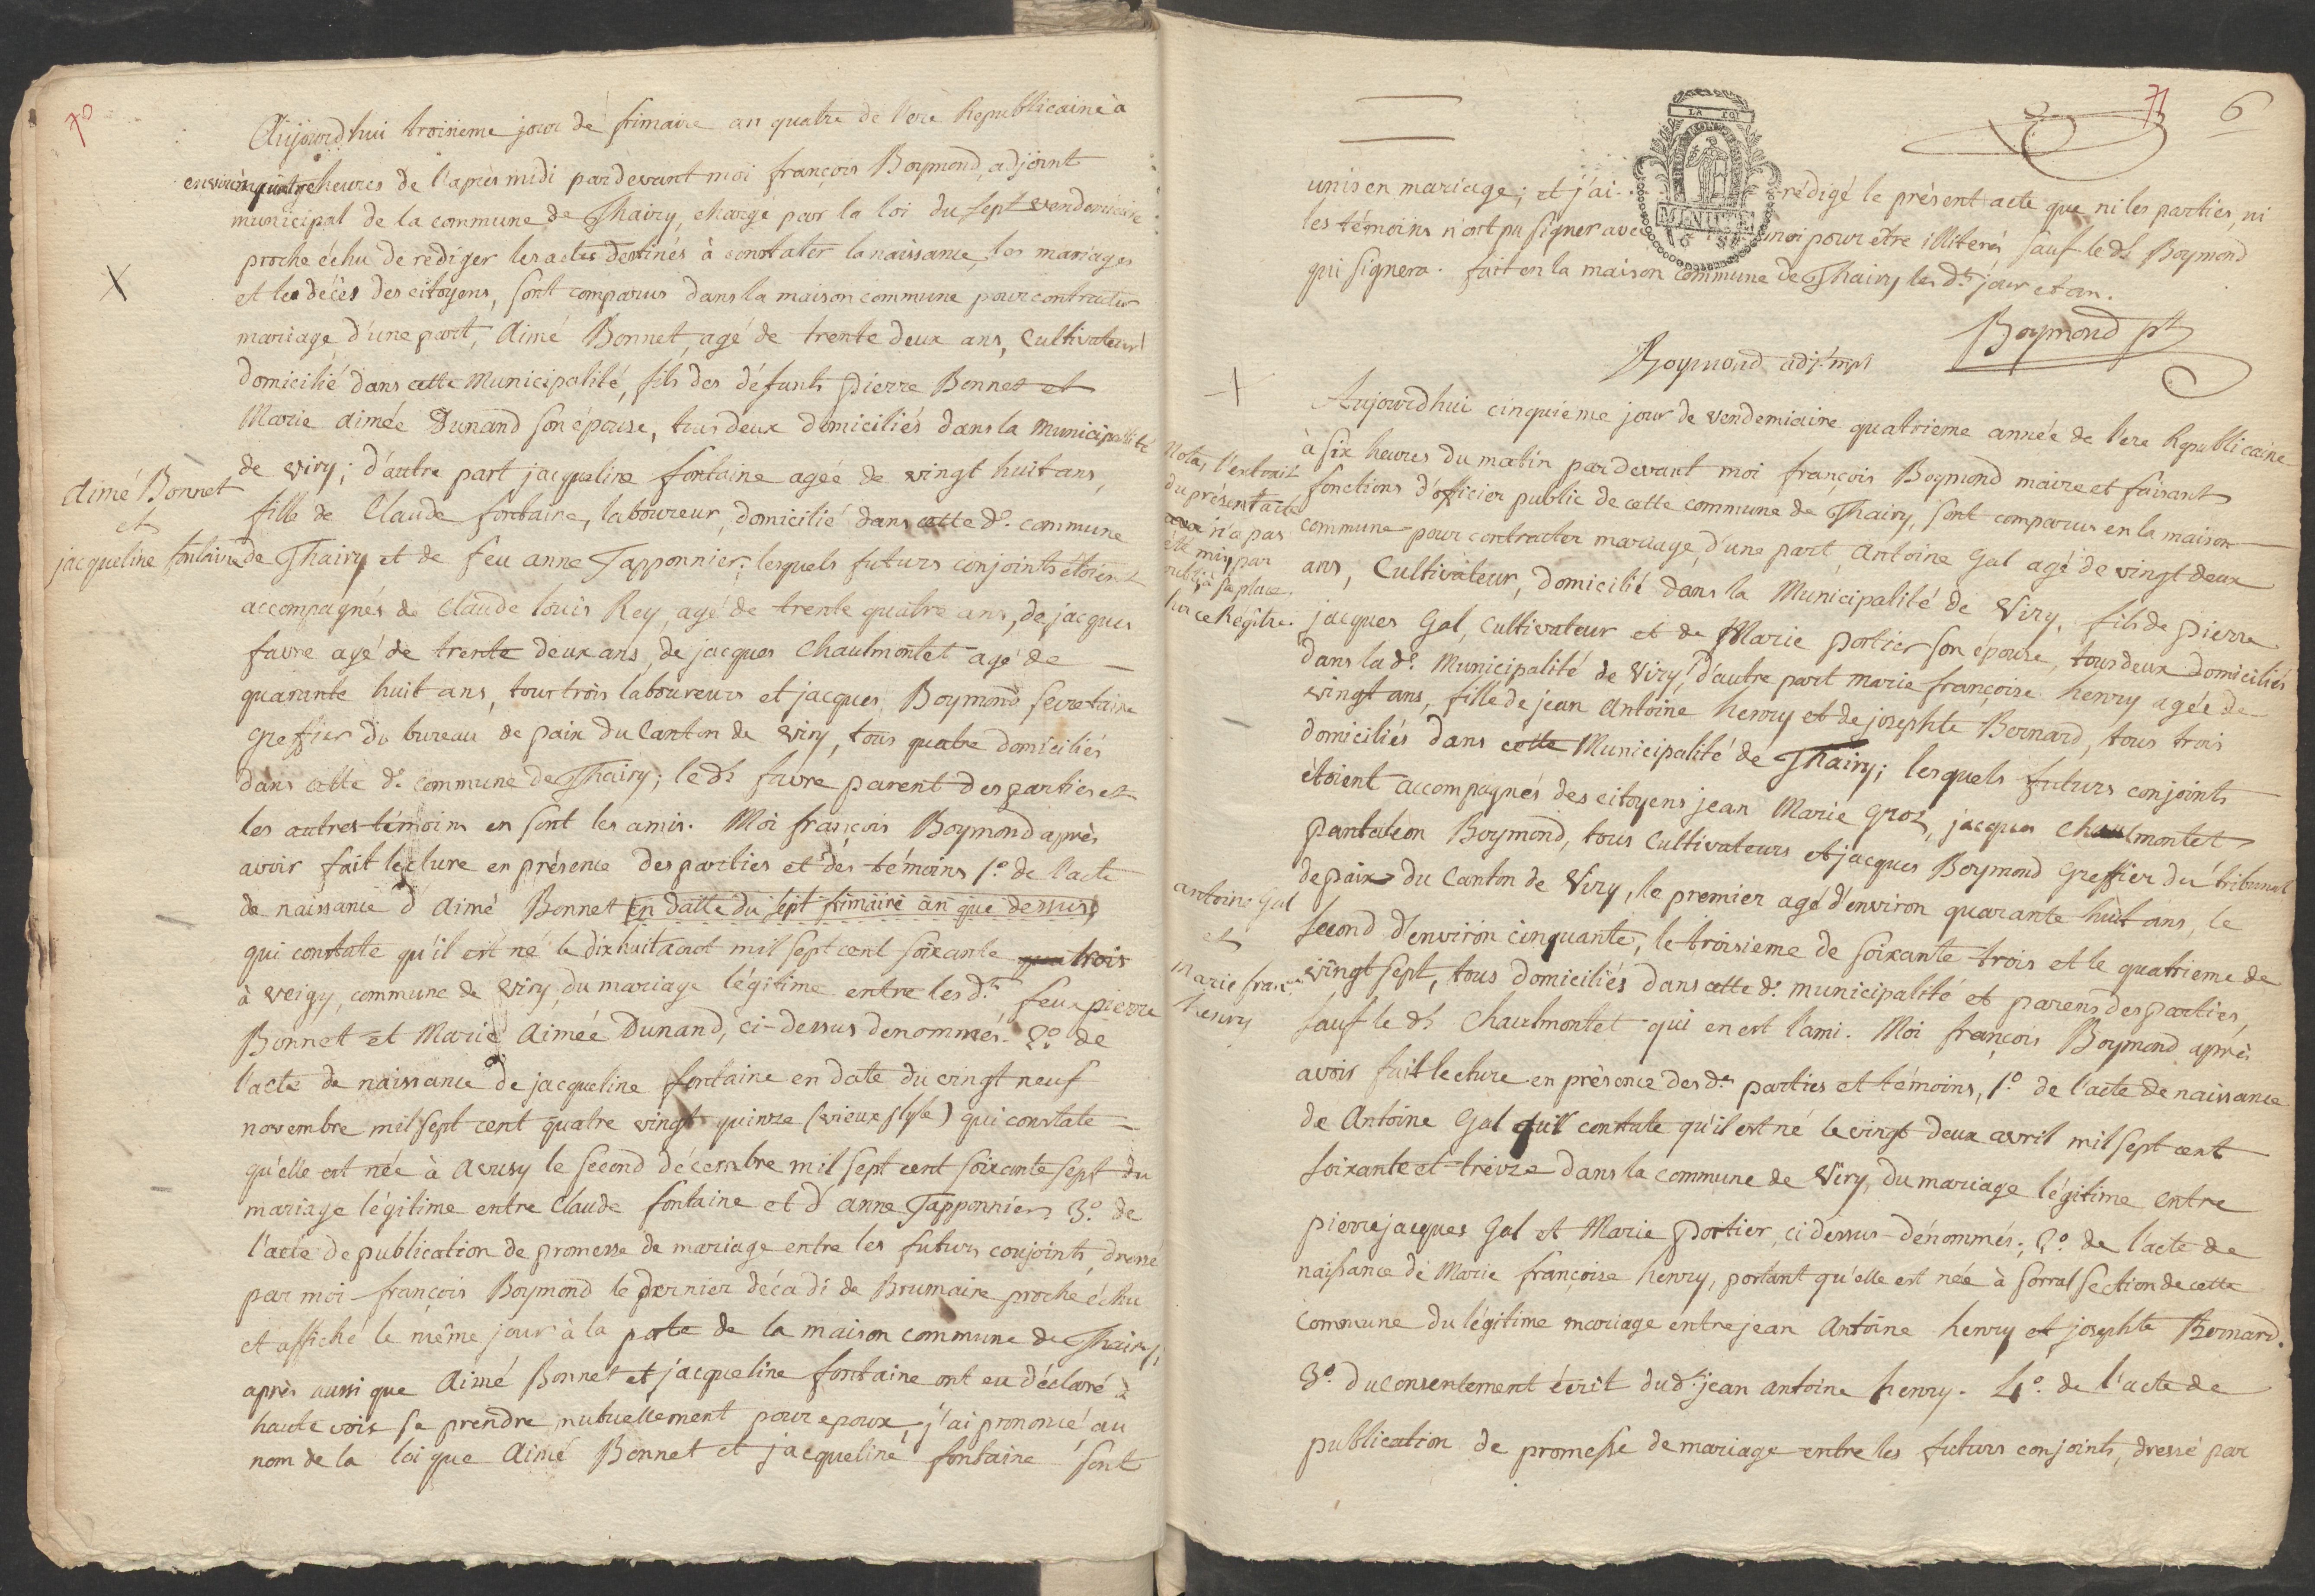 70
Aujourd'hui troisieme jour de frimaire an quatre de l'ere Republicaine à
environ quatre heures de l'après midi pardevant moi françois Boymond, adjoint
municipal de la commune de Thairy, chargé par la loi du sept vendemiaire
proche échu de rédiger les actes destinés à constater la naissance, les mariages
et les décès des citoyens, sont comparus dans la maison commune pour contracter
mariage d'une part, Aimé Bonnet, agé de trente deux ans, Cultivateur
domicilié dans cette Municipalité, fils des défunts Pierre Bonnet et
Marie Aimée Dunand son épouse, tous deux domiciliés dans la Municipalité
de viry; d'autre part jacqueline fontaine agée de vingt huit ans,
Aimé Bonnet
et
jacqueline fontaine
fille de Claude fontaine, laboureur, domicilié dans cette de. commune
de Thairy et de feu anne Tapponnier; lesquels futurs conjoints étoient
accompagnés de Claude louis Rey, agé de trente quatre ans, de jacques
favre agé de trente deux ans, de jacques Chaulmontet agé de
quarante huit ans, tous trois laboureurs et jacques Boymond secretaire
Greffier du bureau de paix du Canton de viry, tous quatre domiciliés
dans cette de. commune de Thairy; le dt. favre parent des parties et
les autres témoins en sont les amis. Moi françois Boymond après
avoir fait lecture en présence des parties et des témoins 1o. de l'acte
de naissance d'Aimé Bonnet en datte du sept frimaire an que dessus
qui constate qu'il est né le dix huit aout mil sept cent soixante trois
à veigy, commune de viry, du mariage légitime entre les dts. feux pierre
Bonnet et Marie Aimée Dunand, ci-dessus denommés. 2o. de
l'acte de naissance de jacqueline fontaine en date du vingt neuf
novembre mil sept cent quatre vingt quinze (vieux style) qui constate
qu'elle est née à Avusy le second décembre mil sept cent soixante sept du
mariage légitime entre Claude fontaine et d'anne Tapponnier 3o. de
l'acte de publication de promesse de mariage entre les futurs conjoints, dressé
par moi françois Boymond le dernier décadi de Brumaire proche échu
et affiché le même jour à la porte de la maison commune de Thairy;
après aussi que Aimé Bonnet et jacqueline fontaine ont eu déclaré à
haute voix se prendre mutuellement pour epoux, j'ai prononcé au
nom de la loi que Aimé Bonnet et jacqueline fontaine sont
71
6
LA LOI
MINUTE
unis en mariage; et j'ai rédigé le présent acte que ni les parties, ni
les témoins n'ont pu signer avec moi pour être illiterés sauf le dt. Boymond
qui signera. fait en la maison commune de Thairy les dts. jour et an.
Boymond
Boymond adjt. mpl
Aujourd'hui cinquieme jour de vendemiaire quatrieme année de l'ere Republicaine
à six heures du matin pardevant moi françois Boymond maire et faisant
fonctions d'officier public de cette commune de Thairy, sont comparus en la maison
commune pour contracter mariage, d'une part, Antoine Gal agé de vingt deux
ans, Cultivateur, domicilié dans la Municipalité de Viry, fils de pierre
jacques Gal, Cultivateur et de Marie portier son épouse, tous deux domiciliés
Nota, l'extrait
du présent acte
n'a pas
été mis par
oubli à sa place
sur ce Regître.
dans la de. Municipalité de Viry, d'autre part marie françoise henry agée de
vingt ans, fille de jean Antoine henry et de josephte Bernard, tous trois
domiciliés dans cette Municipalité de Thairy; lesquels futurs conjoints
étoient accompagnés des citoyens jean Marie Gros, jacques Chaulmontet
pantaléon Boymond, tous Cultivateurs et jacques Boymond Greffier du tribunal
de paix du Canton de Viry, le premier agé d'environ quarante huit ans, le
second d'environ cinquante, le troisieme de soixante trois et le quatrieme de
antoine Gal
et
Marie franc.se
henry
vingt sept, tous domiciliés dans cette de. municipalité et parens des parties,
sauf le dt. Chaulmontet qui en est l'ami. Moi françois Boymond après
avoir fait lecture en présence des des. parties et témoins, 1o. de l'acte de naissance
de Antoine Gal qui constate qu'il est né le vingt deux avril mil sept cent
soixante et treize dans la commune de Viry, du mariage légitime entre
pierre jacques Gal et Marie portier, ci dessus dénommés; 2o. de l'acte de
naissance de Marie françoise henry, portant qu'elle est née à sorral section de cette
commune du légitime mariage entre jean Antoine henry et josephte Bernard.
3o. du consentement écrit du dt. jean antoine henry. 4o. de l'acte de
publication de promesse de mariage entre les futurs conjoints, dressé par